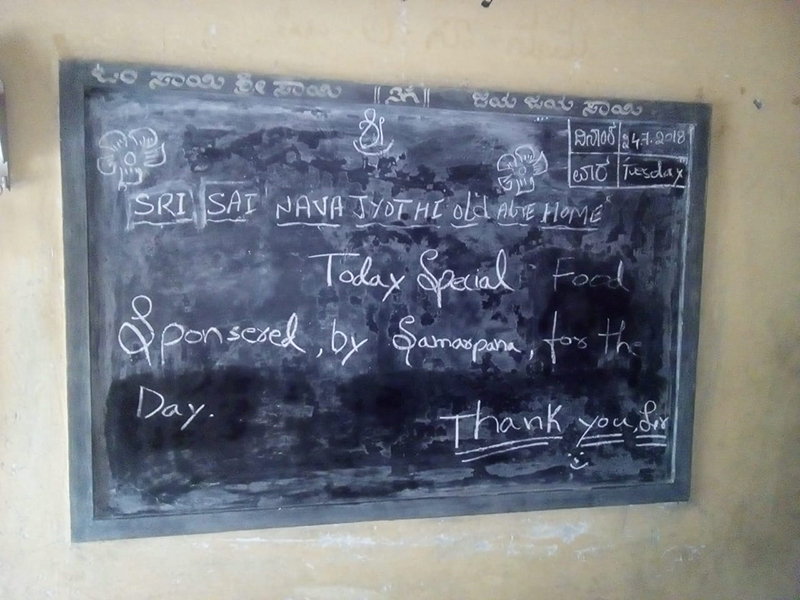 ಓಂ ಸಾಯಿ ಶ್ರೀ ಸಾಯಿ || ೨೧ || ಜಯ ಜಯ ಸಾಯಿ
ಶ್ರೀ
ದಿನಾಂಕ 24.7.2018
ವಾರ Tuesday
SRI SAI NAVA JYOTHI Old AGE HOME
Today Special Food
Sponsered, by Samarpana, for the
Day.
Thank you, Sir